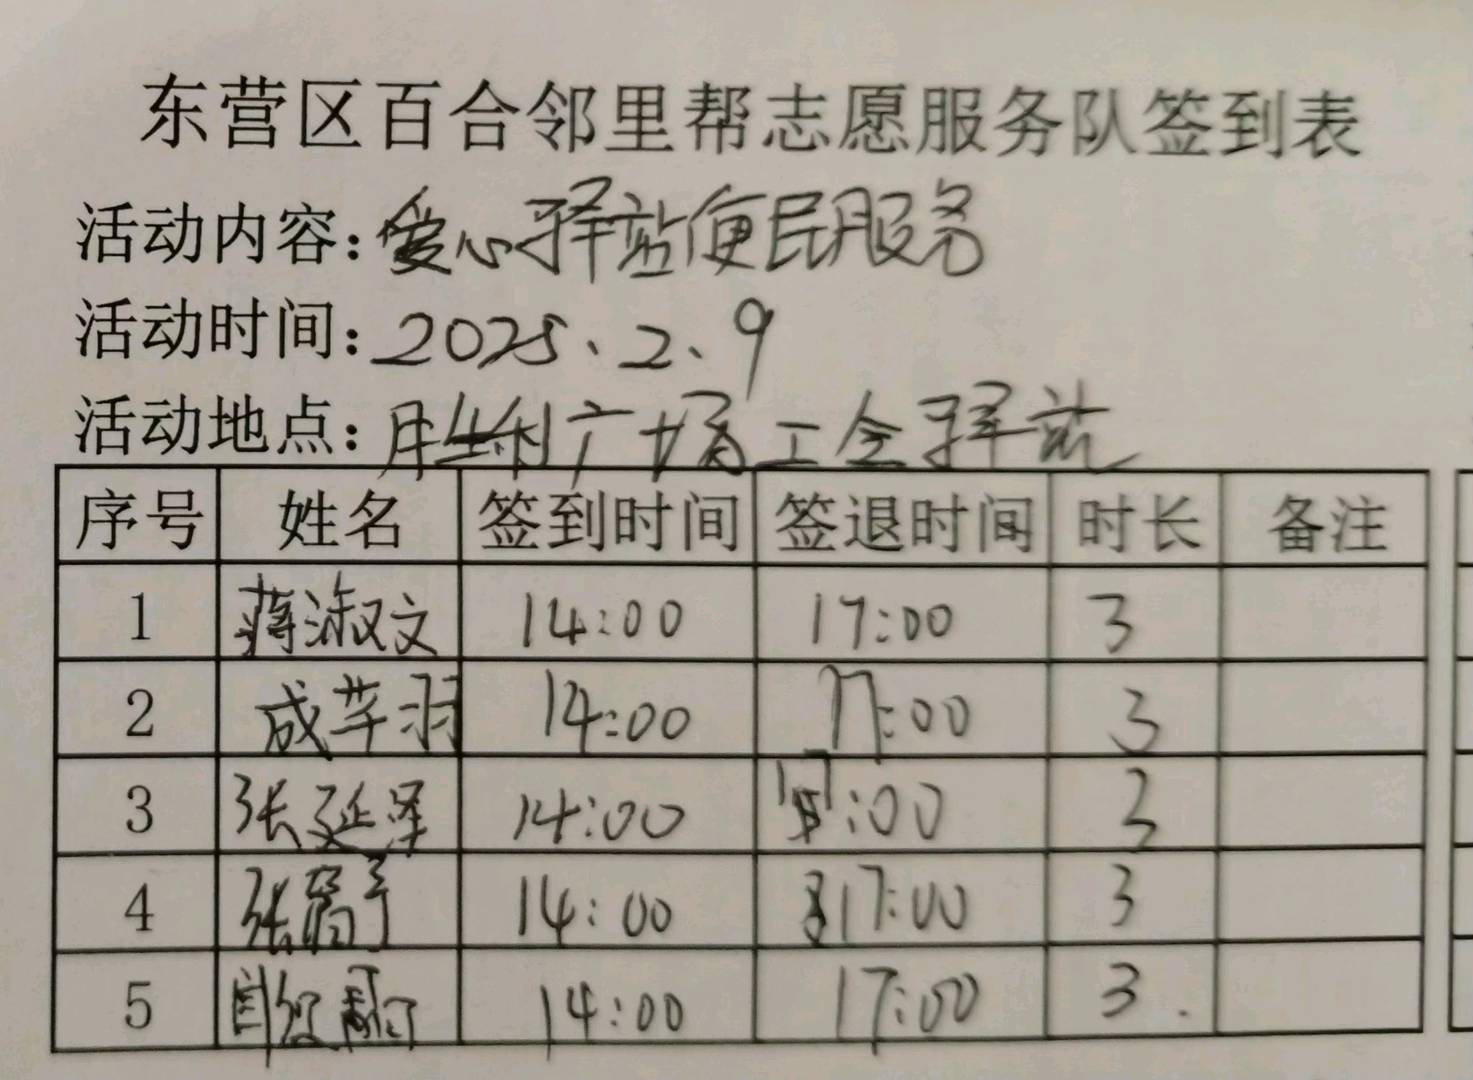 东营区百合邻里帮志愿服务队签到表
活动内容：爱心驿站便民服务
活动时间：2025、2、9
活动地点：胜利广场工会驿站
序号 姓名 签到时间 签退时间 时长 备注
1 蒋淑文 14:00 17:00 3
2 成芊羽 14:00 17:00 3
3 张延泽 14:00 17:00 3
4 张 14:00 17:00 3
5 14:00 17:00 3.